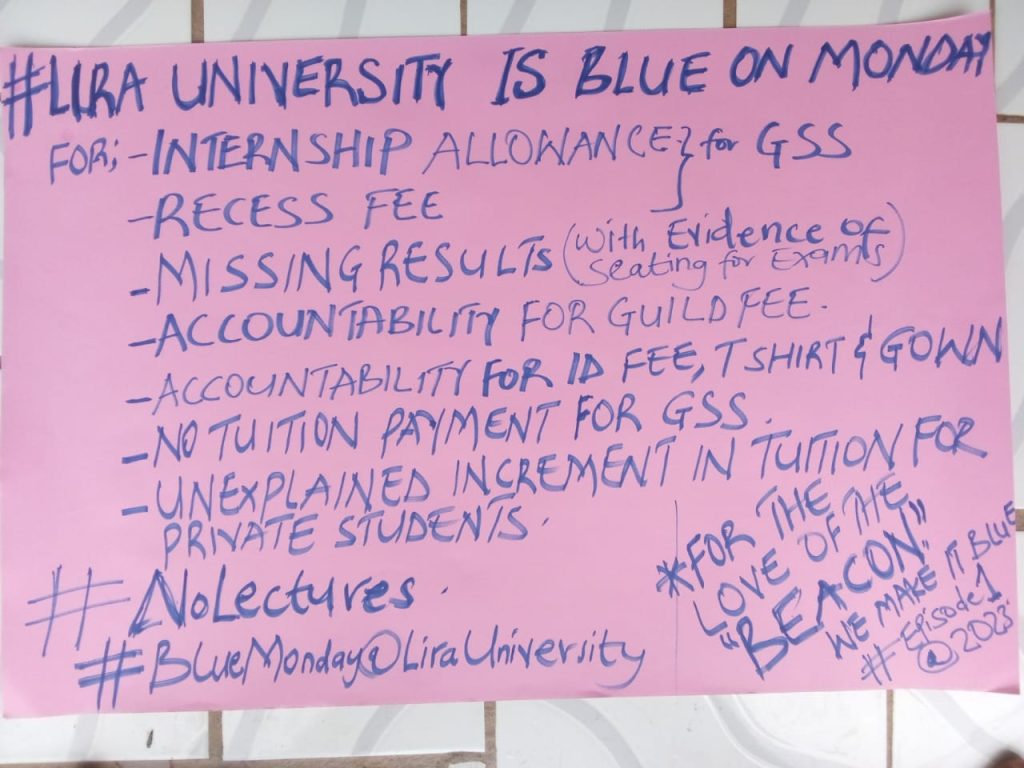 #LIRA UNIVERSITY IS BLUE ON MONDAY
FOR; - INTERNSHIP ALLOWANCE } for GSS
- RECESS FEE
- MISSING RESULTS (with Evidence of
Seating for Exams)
- ACCOUNTABILITY FOR GUILD FEE.
- ACCOUNTABILITY FOR ID FEE, T SHIRT & GOWN
- NO TUITION PAYMENT FOR GSS.
- UNEXPLAINED INCREMENT IN TUITION FOR
PRIVATE STUDENTS.
# NoLectures.
#BlueMonday@LiraUniversity
*FOR THE
LOVE OF THE
"BEACON"
WE MAKE IT BLUE
#Episode1
@2023